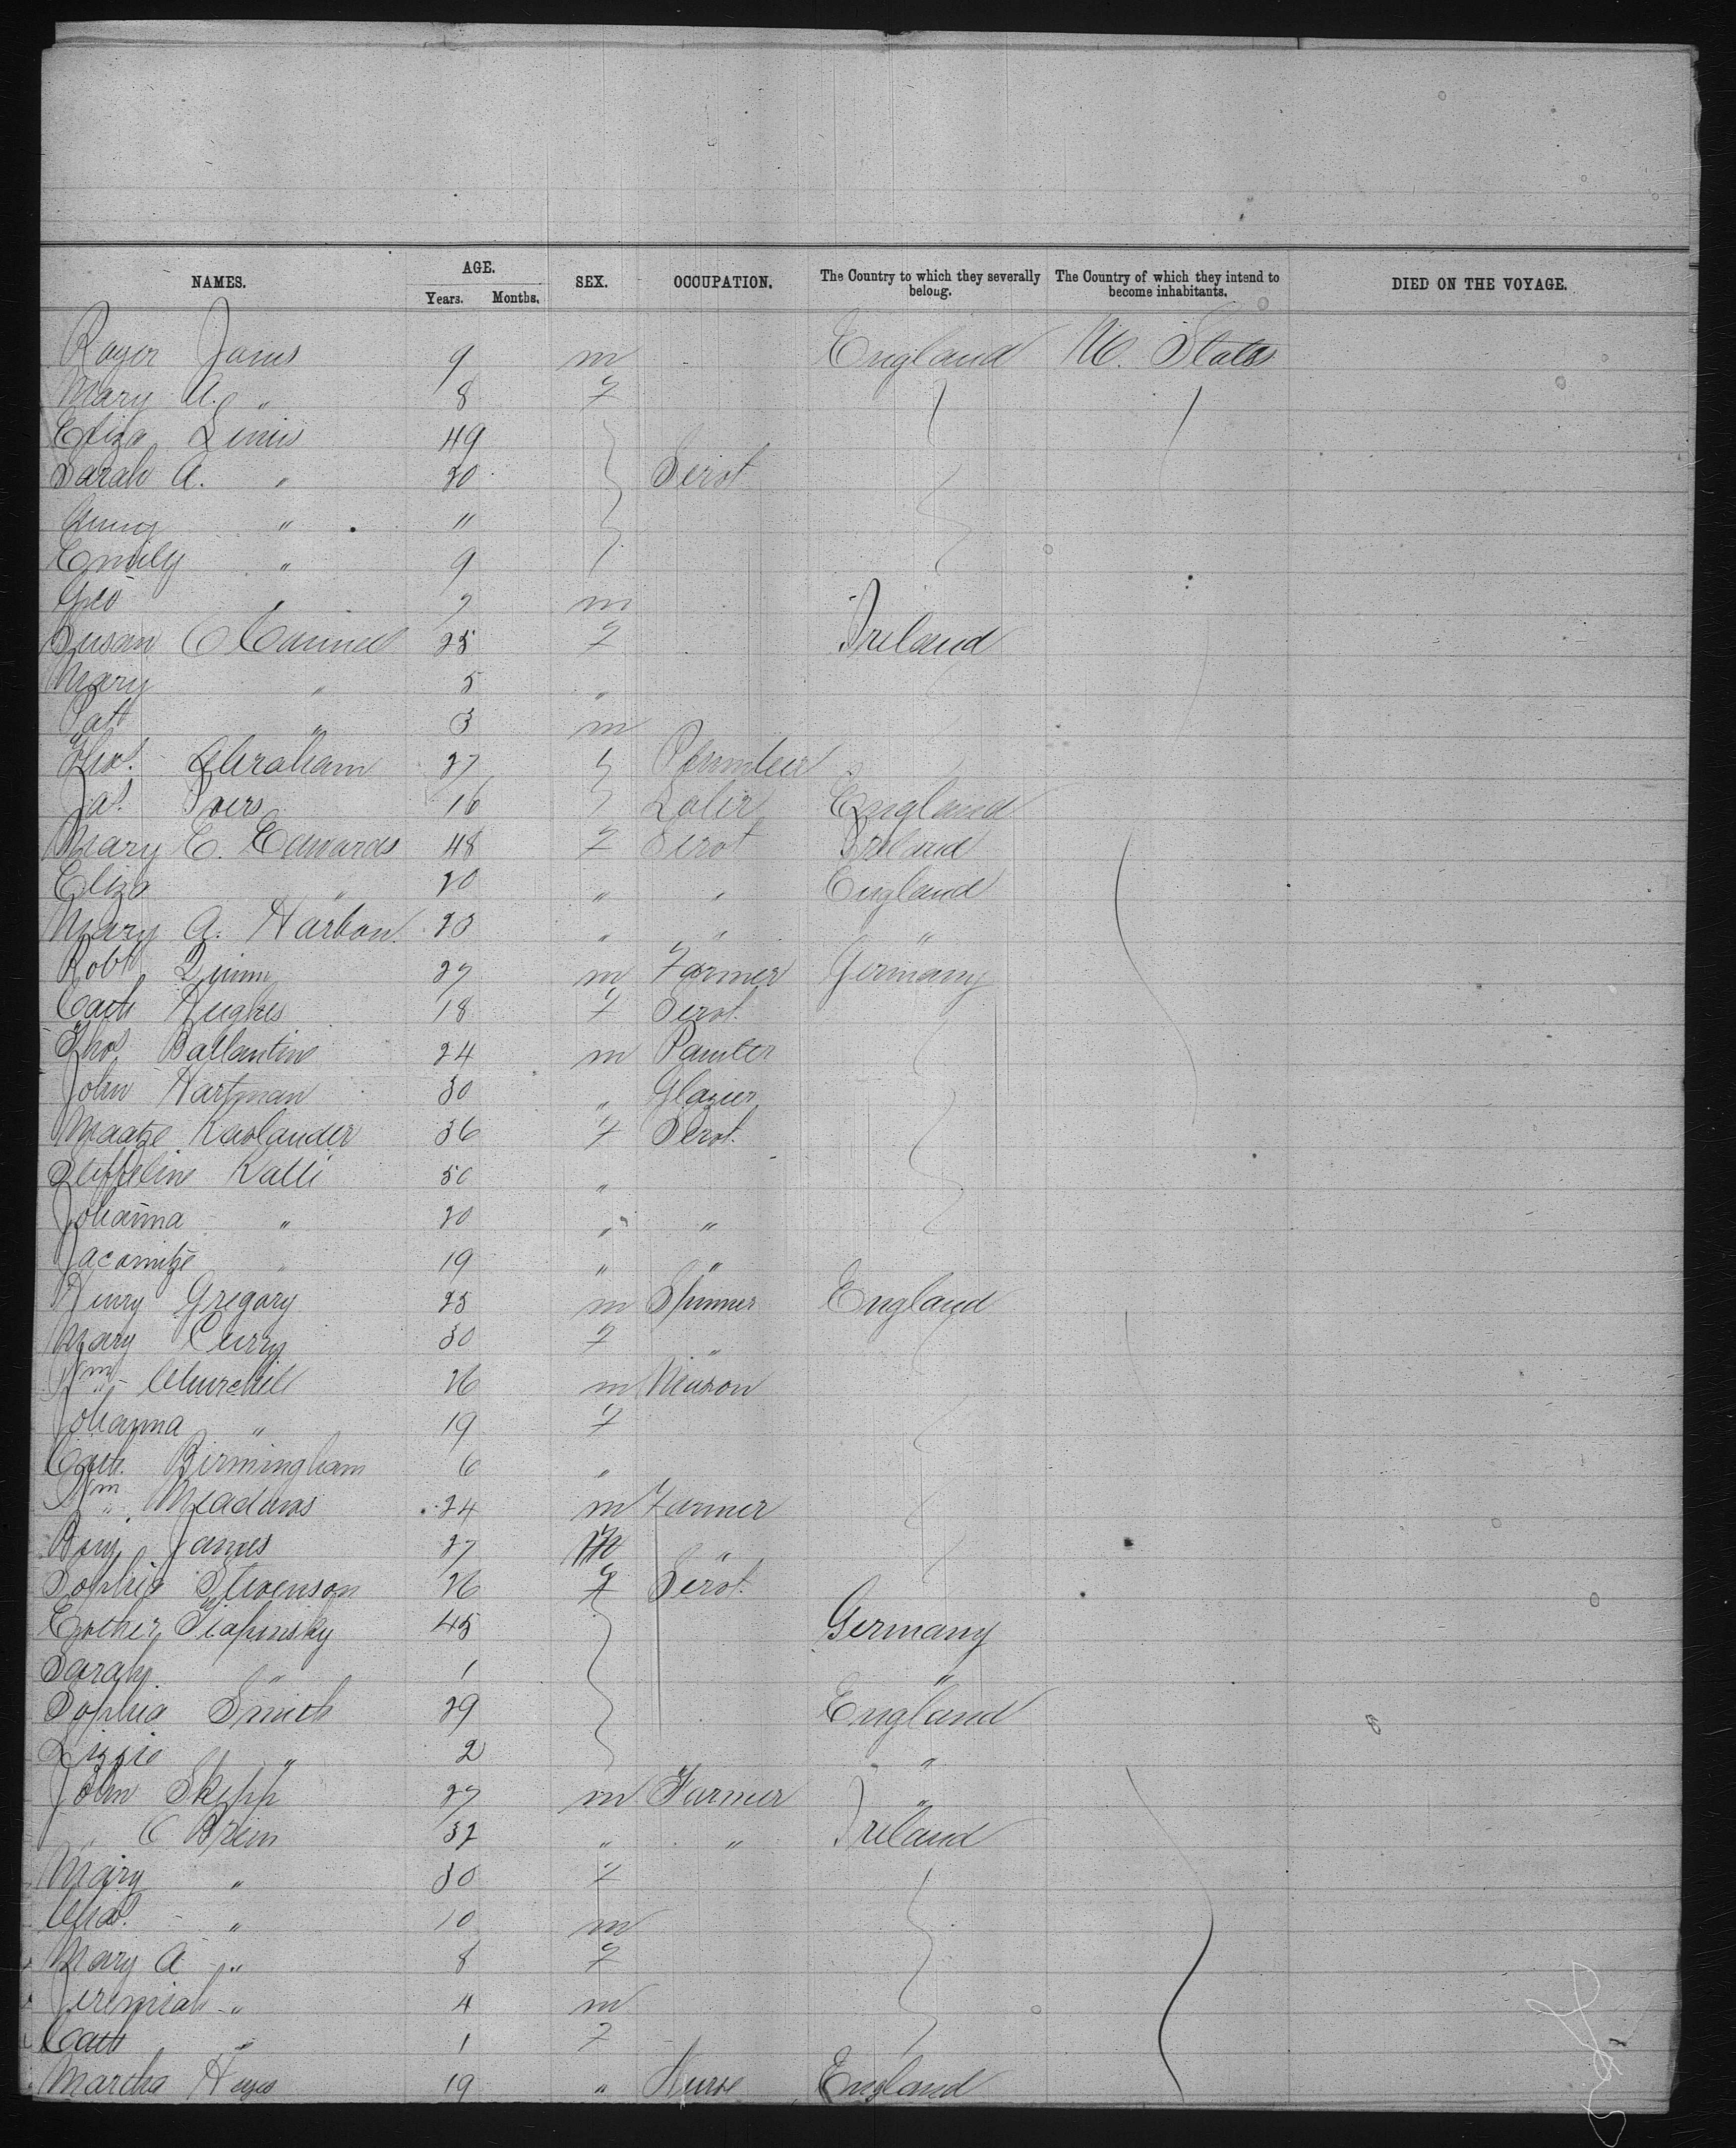 NAMES. AGE. Years. Months. SEX. OCCUPATION. The Country to which they severally belong. The Country of which they intend to become inhabitants. DIED ON THE VOYAGE.
Roger 9 m England U. States
Mary A. " 8 f
Eliza 49
Sarah A. " 20 Servt
" 11
Emily " 9
Geo " 7 m
Susan 25 f Ireland
Mary " 5 "
Pat " 3 m
Thos. Abraham 27 Plumber
Jas. 16 England
Mary E. Edwards 48 f Servt Ireland
Eliza " 20 " " England
Mary A. Harbon 23 " " "
Robt Quinn 27 m Farmer Germany
Cath Hughes 18 f Servt.
Thos Ballantine 24 m Painter
John Hartman 30 " Glazier
Maatze 36 f Servt.
Kalli 50 "
Johanna " 20 " "
" 19 " "
Henry Gregory 25 m Spinner England
Mary Curry 30 f "
Wm Churchill 26 m Mason
Johanna " 19 f
Cath. Birmingham 6 "
Wm Meadows 24 m Farmer
Benj. James 27 m "
Sophia Stevenson 26 f Servt.
Esther 45 Germany
Sarah. " 1 "
Sophia Smith 29 England
Lizzie " 2 "
John Skipp 27 m Farmer "
" O Brien 32 " " Ireland
Mary " 30 f
Chas. " 10 m
Mary A " 8 f
Jeremiah " 4 m
Cath " 1 f
Martha 19 " Nurse England